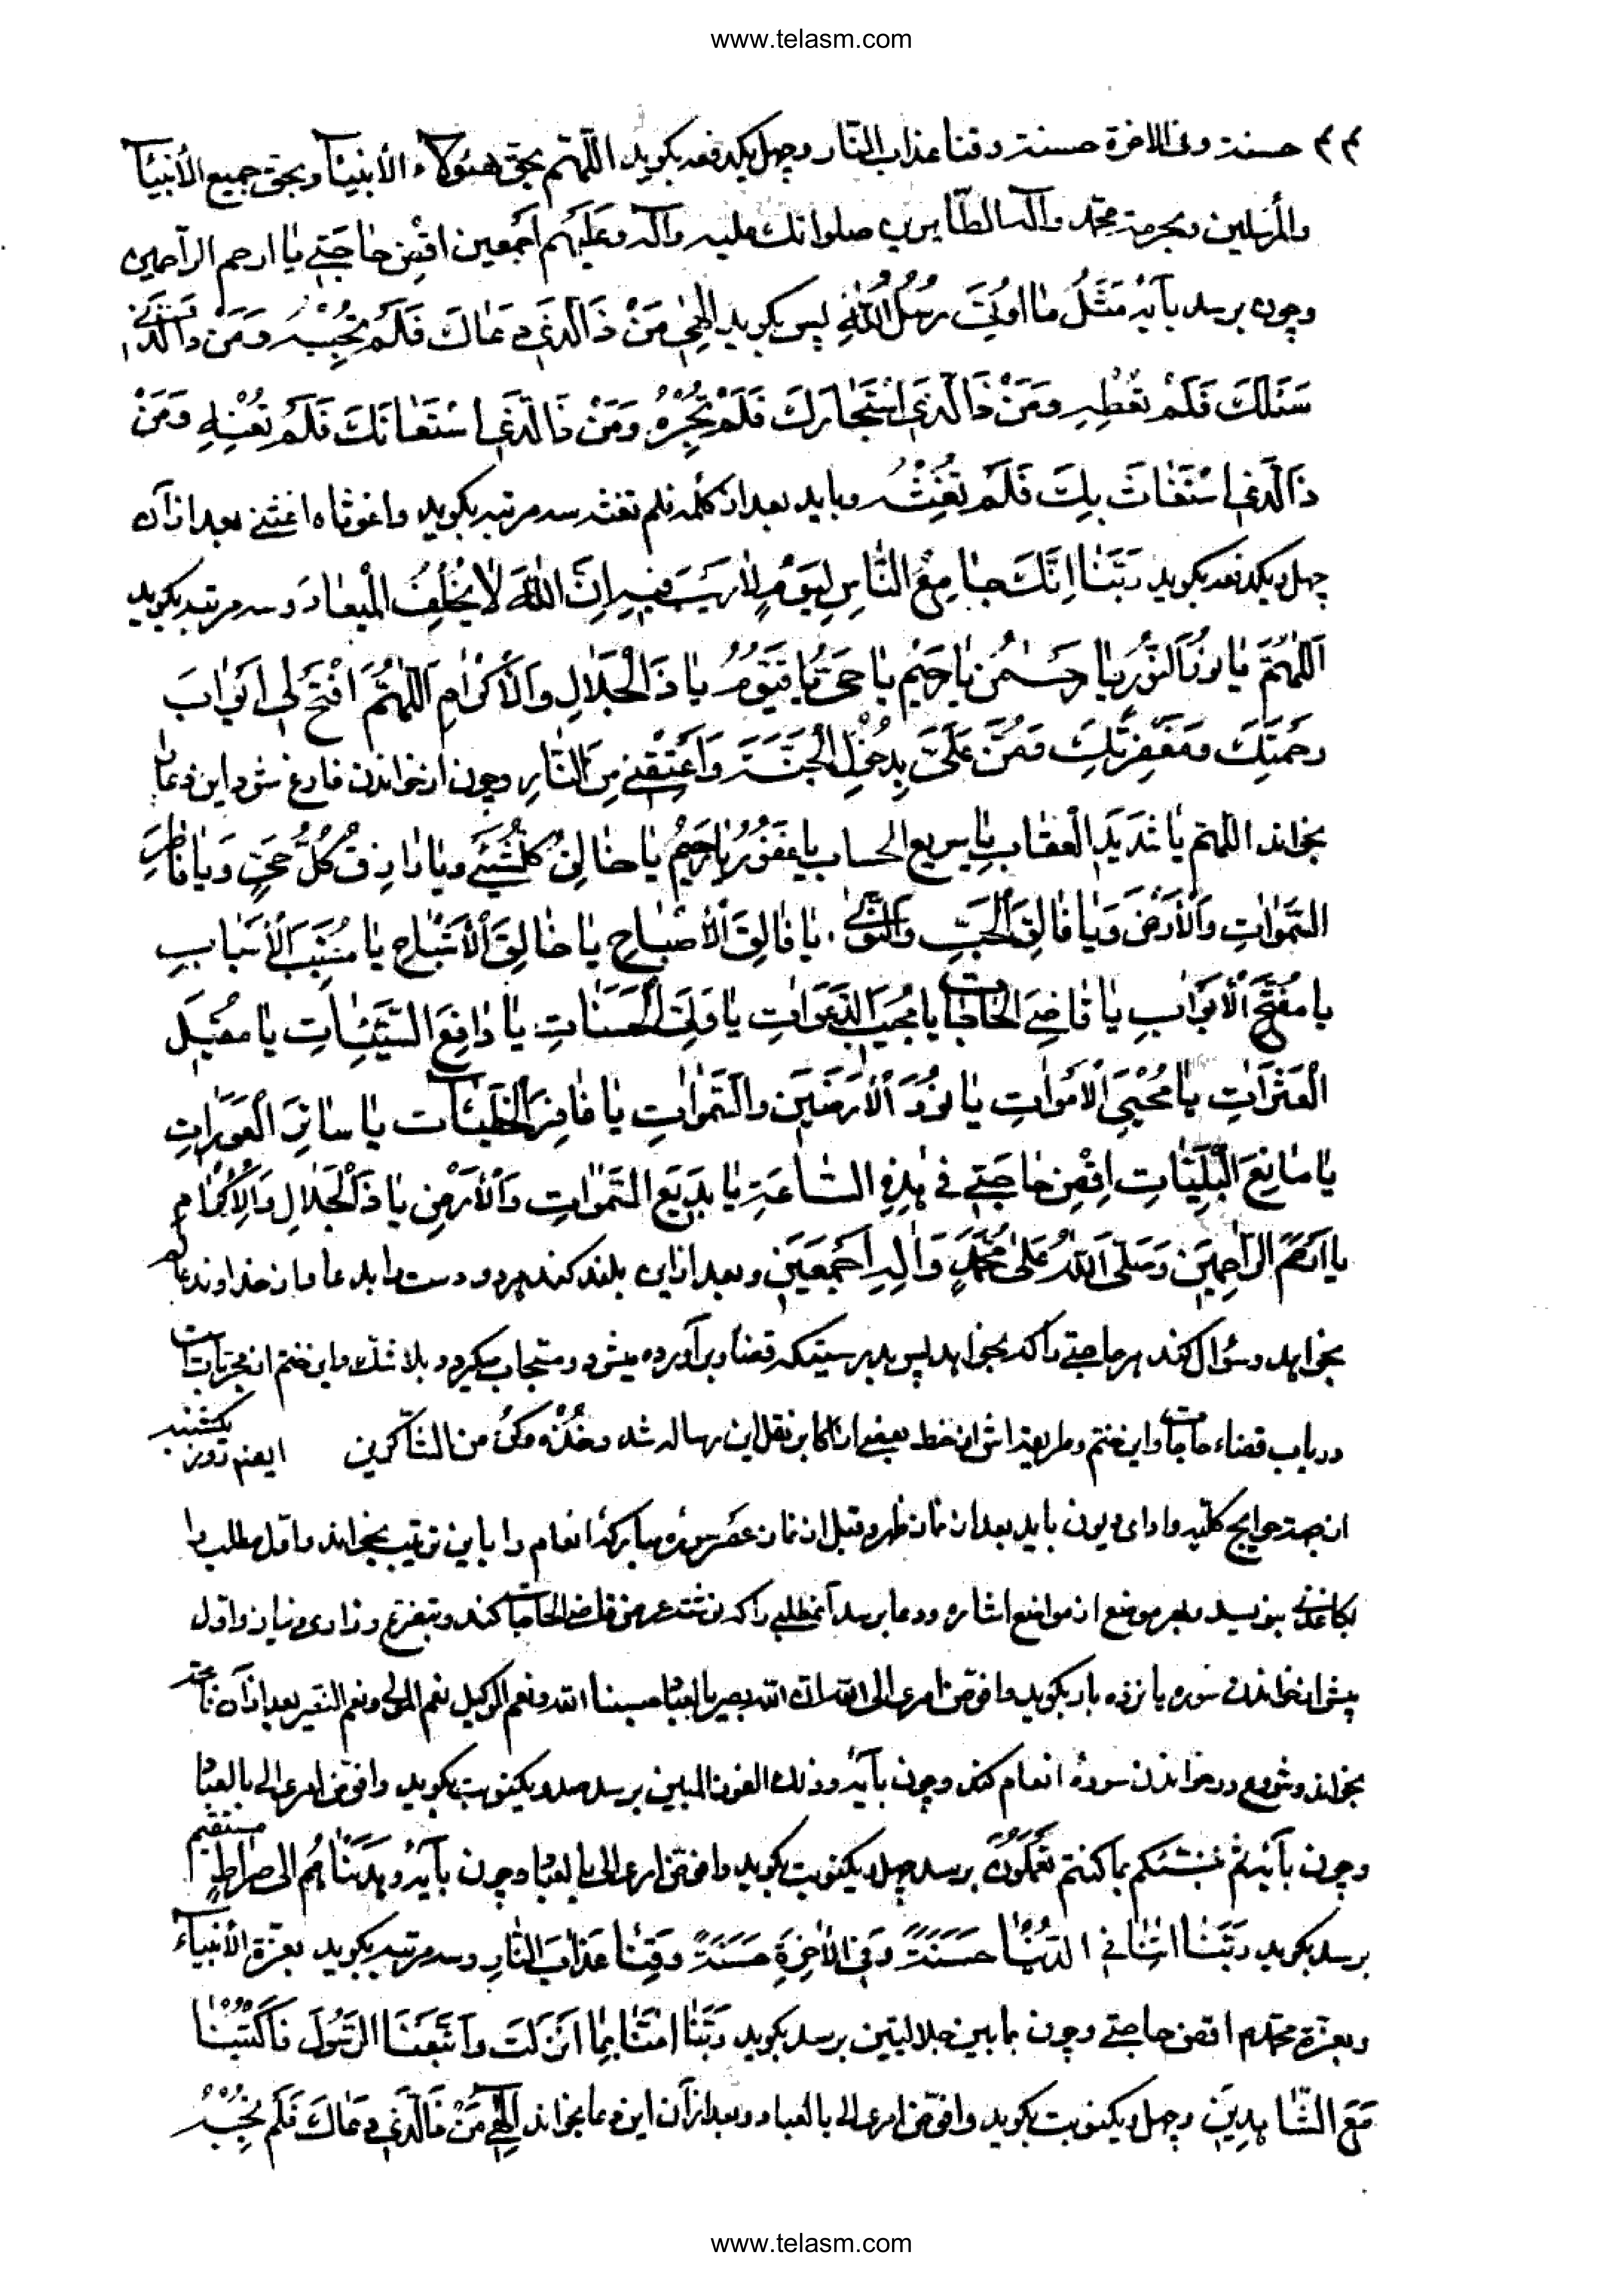 www.telasm.com
۴۴ حسنة وفی الاخرة حسنة وقنا عذاب النّار وچهل یکدفعه بکوید اللّٰهمّ بحقّ هٰؤلآء الأنبیآء وبحق جمیع الأنبیآء
والمرسلین وبحرمة محمّد وآله الطّاهرین صلواتك علیه وآله وعَلَیْهِم اَجْمعین اقْضِ حٰاجَتے یٰا ارحم الرّاحمین
وچون برسد بآیهٔ مَثَلُ مٰا اوُتِیَ رُسُلُ اللّٰهِ پس بکوید اِلٰهی مَنْ ذَا الَّذی دَعٰاكَ فَلَمْ تُجِبْهُ وَمَنْ ذَا الَّذی
سَئَلَكَ فَلَمْ تُعْطِهِ وَمَنْ ذَا الَّذی اسْتَجٰارَكَ فَلَمْ تُجِرْهُ وَمَنْ ذَا الَّذی اسْتَعٰانَكَ فَلَمْ تُعِنْهُ وَمَنْ
ذَا الَّذی اسْتَغٰاثَ بِكَ فَلَمْ تُغِثْهُ وباید بعد از کلمه فلم تغثه سه مرتبه بکوید واغوثاه اغثنے بعد از آن
چهل یکدفعه بکوید رَبَّنٰا اِنَّكَ جٰامِعُ النّٰاسِ لِیَوْمٍ لاٰ رَیْبَ فیهِ اِنَّ اللّٰهَ لاٰ یُخْلِفُ الْمیعٰادَ وسه مرتبه بکوید
اَللّٰهُمَّ یٰا نُورَ النُّورِ یٰا رَحْمٰنُ یٰا رَحیمُ یٰا حَیُّ یٰا قَیُّومُ یٰا ذَا الْجَلاٰلِ وَالْاِکْرٰامِ اَللّٰهُمَّ افْتَحْ لی اَبْوٰابَ
رَحْمَتِكَ وَمَغْفِرَتِكَ وَمُنَّ عَلَیَّ بِدُخُولِ الْجَنَّةِ وَاَعْتِقْنی مِنَ النّٰارِ وچون از خواندن فارغ شود این دعا را
بخواند اللّٰهمّ یٰا شَدیدَ الْعِقٰابِ یٰا سریع الحساب یا غَفُورُ یٰا رَحیمُ یٰا خٰالِقَ کُلِّشَیْءٍ وَیٰا رٰازِقَ کُلِّ حَیٍّ وَیٰا فٰاطِرَ
السَّمٰوٰاتِ وَالْاَرْضِ وَیٰا فٰالِقَ الْحَبِّ وَالنَّویٰ یٰا فٰالِقَ الْاَصْبٰاحِ یٰا خٰالِقَ الْاَشْبٰاحِ یٰا مُسَبِّبَ الْاَسْبٰابِ
یا مُفَتِّحَ الْاَبْوٰابِ یٰا قٰاضِیَ الحٰاجٰات یا مُجیبَ الدَّعَوٰاتِ یٰا وَلِیَّ الْحَسَنٰاتِ یٰا دٰافِعَ السَّیِّئٰاتِ یٰا مُقیلَ
الْعَثَرٰاتِ یٰا مُحْیِیَ الْاَمْوٰاتِ یٰا نُورَ الْاَرَضینَ وَالسَّمٰوٰاتِ یٰا غٰافِرَ الْخَطیئٰآت یٰا سٰاتِرَ الْعَوْرٰاتِ
یٰا مٰانِعَ الْبَلِیّٰاتِ اِقْضِ حٰاجَتی فی هٰذِهِ السّٰاعَةِ یٰا بَدیعَ السَّمٰوٰاتِ وَالْاَرْضِ یٰا ذَا الْجَلاٰلِ وَالْاِکْرٰامِ
یٰا اَرْحَمَ الرّٰاحِمینَ وَصَلَّی اللّٰهُ عَلیٰ مُحَمَّدٍ وَآلِهِ اَجْمَعینَ وبعد از این بلند کند هر دو دست را بدعا و از خداوند عالم
بخواهد وسؤال کند هر حاجتے را که بخواهد پس بدرستیکه قضا وبرآورده میشود ومستجاب میکردد بلا شك واین ختم از مجرّبات است
در باب قضاء حاجات واین ختم وطریقه‌اش از خط بعضی از اکابر نقل این رساله شد وخُذْه وکُن من الشّاکرین ایضا در روز یکشنبه
از جهة حوایج کلّیه وادای دیون باید بعد از نماز ظهر وقبل از نماز عصر سورهٔ مبارکهٔ انعام را باین ترتیب بخواند واوّل مطلب را
بکاغذی بنویسد وبهر موضع از مواضع اشاره ودعا برسد آنمطلبی را که نوشته عرض قاضی الحاجات کند وبتضرّع وزاری ونیاز واوّل
پیش از خواندن سوره پانزده بار بکوید وافوّض امری الی الله انّ الله بصیر بالعباد حسبنا الله ونعم الوکیل نعم المولی ونعم النّصیر بعد از آن فاتحه
بخواند وشروع در خواندن سورهٔ انعام کند وچون بآیهٔ وذلك الفوز المبین برسد صد ویکنوبت بکوید وافوّض امری الی بالعباد
وچون بآیهٔ ثُمَّ یُنَبِّئُکم بما کنتم تَعْمَلُونَ برسد چهل یکنوبت بکوید وافوّض امری الی بالعباد وچون بآیهٔ وهدَیْنٰاهُم الی صراطٍ مستقیم
برسد بکوید رَبَّنٰا اٰتِنٰا فی الدُّنْیٰا حَسَنَةً وَفِی الْاٰخِرَةِ حَسَنَةً وَقِنٰا عَذٰابَ النّٰارِ وسه مرتبه بکوید بعزّة الأنبیآء
وبعزّة محمّدم اقض حاجتے وچون مابین جلالتین برسد بکوید رَبَّنٰا اٰمَنّٰا بِمٰا اَنْزَلْتَ وَاتَّبَعْنَا الرَّسُولَ فَاکْتُبْنٰا
مَعَ الشّٰاهِدینَ وچهل ویکنوبت بکوید وافوّض امری الی بالعباد وبعد از آن این دعا بخواند اِلٰهی مَنْ ذَا الَّذی دَعٰاكَ فَلَمْ تُجِبْهُ
www.telasm.com